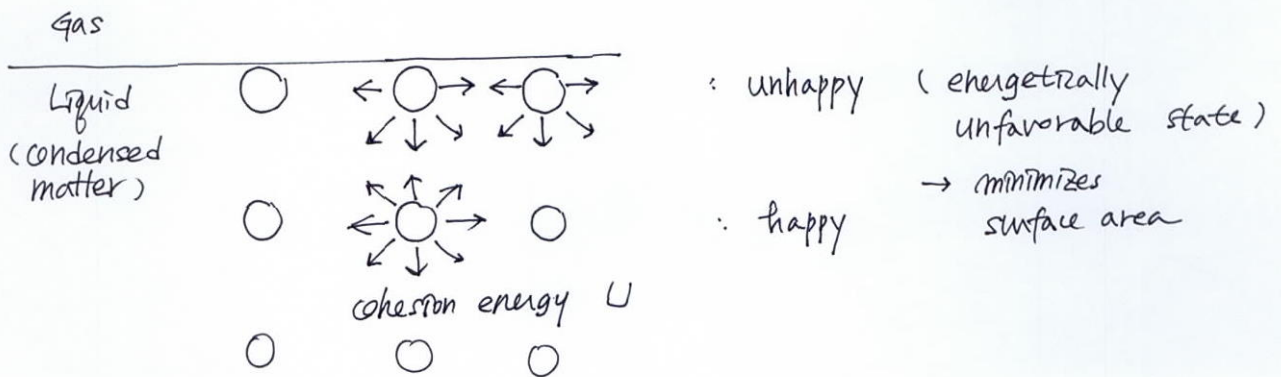 Gas
Liquid
(condensed
matter)
: unhappy (energetically
unfavorable state)
→ minimizes
surface area
: happy
cohesion energy U